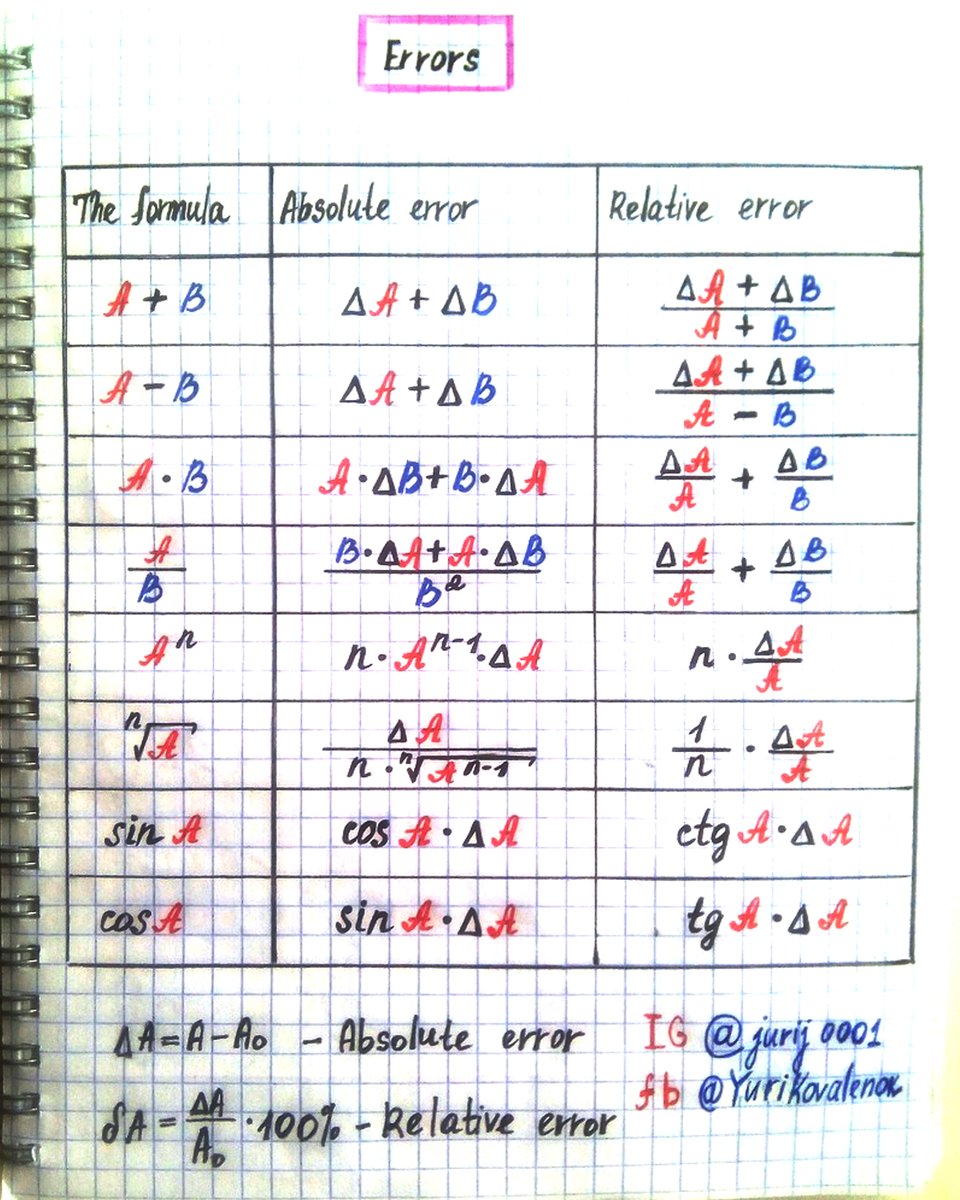 Errors
The formula | Absolute error | Relative error
A + B | ΔA + ΔB | (ΔA + ΔB)/(A + B)
A − B | ΔA + ΔB | (ΔA + ΔB)/(A − B)
A · B | A·ΔB+B·ΔA | ΔA/A + ΔB/B
A/B | (B·ΔA+A·ΔB)/B² | ΔA/A + ΔB/B
Aⁿ | n·Aⁿ⁻¹·ΔA | n · ΔA/A
ⁿ√A | ΔA/(n·ⁿ√(Aⁿ⁻¹)) | 1/n · ΔA/A
sin A | cos A · ΔA | ctg A · ΔA
cos A | sin A · ΔA | tg A · ΔA
ΔA = A − A₀ – Absolute error
IG @jurij0001
fb @YuriKovalenok
δA = ΔA/A₀ · 100% – Relative error